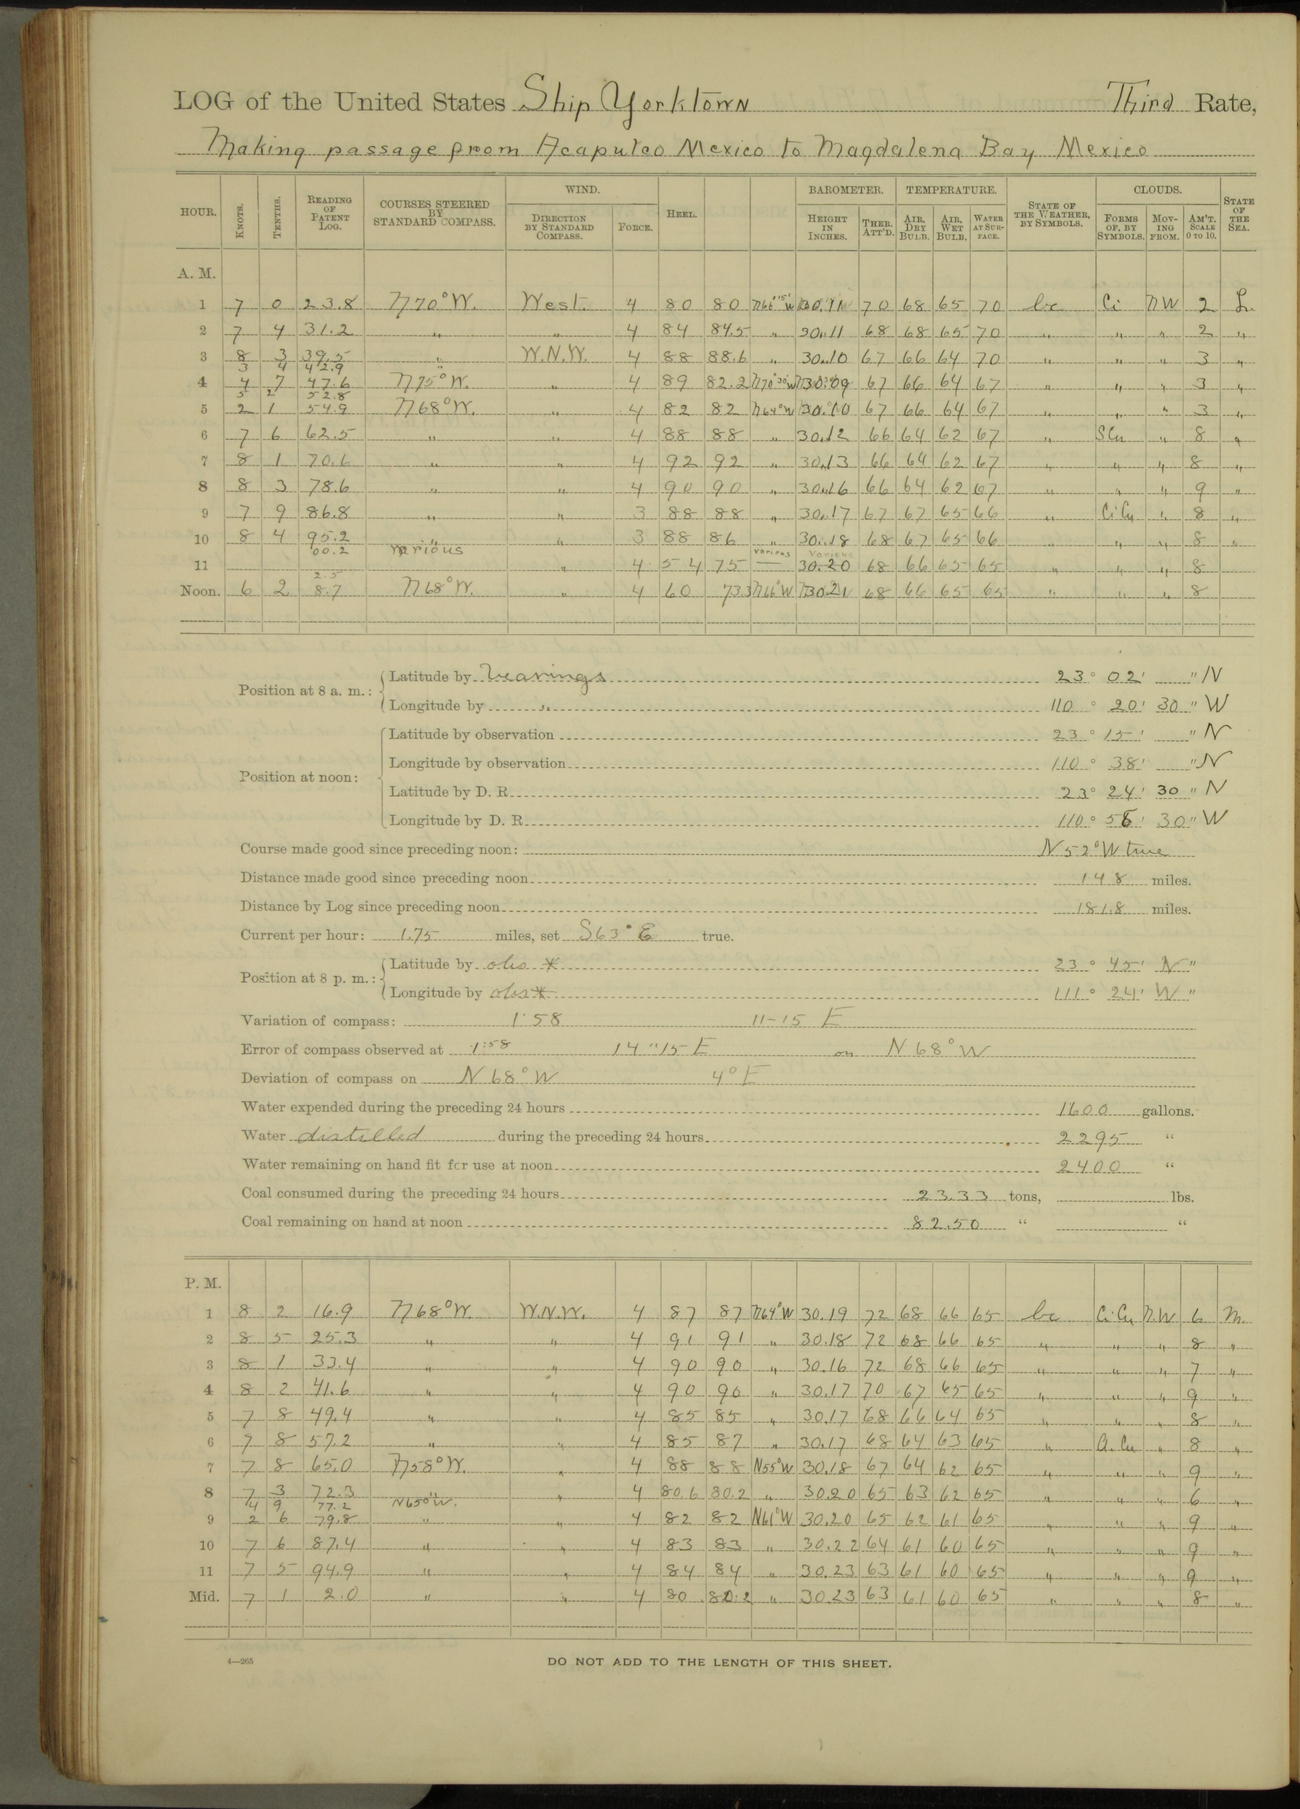 LOG of the United States Ship Yorktown Third Rate,
Making passage from Acapulco Mexico to Magdalena Bay Mexico
HOUR. KNOTS. TENTHS. READING OF PATENT LOG. COURSES STEERED BY STANDARD COMPASS. WIND. DIRECTION BY STANDARD COMPASS. FORCE. HEEL. BAROMETER. HEIGHT IN INCHES. THER. ATT'D. TEMPERATURE. AIR, DRY BULB. AIR, WET BULB. WATER AT SURFACE. STATE OF THE WEATHER, BY SYMBOLS. CLOUDS. FORMS OF, BY SYMBOLS. MOVING FROM. AM'T. SCALE 0 TO 10. STATE OF THE SEA.
A. M.
1 7 0 23.8 N70°W. West. 4 80 80 30.11 70 68 65 70 bc Ci NW 2 L.
2 7 4 31.2 " " 4 84 84.5 " 30.11 68 68 65 70 " " " 2 "
3 8 3 39.5 " W.N.W. 4 88 88.6 " 30.10 67 66 64 70 " " " 3 "
3 4 42.9
4 4 7 47.6 N75°W. " 4 89 82.2 30.09 67 66 64 67 " " " 3 "
5 2 52.8
5 2 1 54.9 N68°W. " 4 82 82 N64°W 30.10 67 66 64 67 " " " 3 "
6 7 6 62.5 " " 4 88 88 " 30.12 66 64 62 67 " SCu " 8 "
7 8 1 70.6 " " 4 92 92 " 30.13 66 64 62 67 " " " 8 "
8 8 3 78.6 " " 4 90 90 " 30.16 66 64 62 67 " " " 9 "
9 7 9 86.8 " " 3 88 88 " 30.17 67 67 65 66 " CiCu " 8 "
10 8 4 95.2 " " 3 88 86 " 30.18 68 67 65 66 " " " 8 "
00.2 various various
11 " 4 54 75 — 30.20 68 66 65 65 " " " 8
2.5
Noon. 6 2 8.7 N68°W. " 4 60 73.3 N66°W 30.21 68 66 65 65 " " " 8
Position at 8 a. m.: Latitude by bearings 23° 02' " N
Longitude by " 110° 20' 30" W
Position at noon: Latitude by observation 23° 15' " N
Longitude by observation 110° 38' " N
Latitude by D. R. 23° 24' 30" N
Longitude by D. R. 110° 58' 30" W
Course made good since preceding noon: N52°W true
Distance made good since preceding noon 148 miles.
Distance by Log since preceding noon 181.8 miles.
Current per hour: 1.75 miles, set S63°E true.
Position at 8 p. m.: Latitude by obs * 23° 45' N "
Longitude by obs * 111° 24' W "
Variation of compass: 1 58 11-15 E
Error of compass observed at 1:58 14 " 15 E on N68°W
Deviation of compass on N68°W 4°E
Water expended during the preceding 24 hours 1600 gallons.
Water distilled during the preceding 24 hours 2295 "
Water remaining on hand fit for use at noon 2400 "
Coal consumed during the preceding 24 hours 23.33 tons, lbs.
Coal remaining on hand at noon 82.50 " "
P. M.
1 8 2 16.9 N68°W. W.N.W. 4 87 87 N64°W 30.19 72 68 66 65 bc CiCu N.W 6 M.
2 8 5 25.3 " " 4 91 91 " 30.18 72 68 66 65 " " " 8 "
3 8 1 33.4 " " 4 90 90 " 30.16 72 68 66 65 " " " 7 "
4 8 2 41.6 " " 4 90 90 " 30.17 70 67 65 65 " " " 9 "
5 7 8 49.4 " " 4 85 85 " 30.17 68 66 64 65 " " " 8 "
6 7 8 57.2 " " 4 85 87 " 30.17 68 64 63 65 " A.Cu " 8 "
7 7 8 65.0 N58°W. " 4 88 88 N55°W 30.18 67 64 62 65 " " " 9 "
8 7 3 72.3 " " 4 80.6 80.2 " 30.20 65 63 62 65 " " " 6 "
4 9 77.2 N65°W.
9 2 6 79.8 " " 4 82 82 N61°W 30.20 65 62 61 65 " " " 9 "
10 7 6 87.4 " " 4 83 83 " 30.22 64 61 60 65 " " " 9 "
11 7 5 94.9 " " 4 84 84 " 30.23 63 61 60 65 " " " 9 "
Mid. 7 1 2.0 " " 4 80 80.2 " 30.23 63 61 60 65 " " " 8 "
4—265
DO NOT ADD TO THE LENGTH OF THIS SHEET.